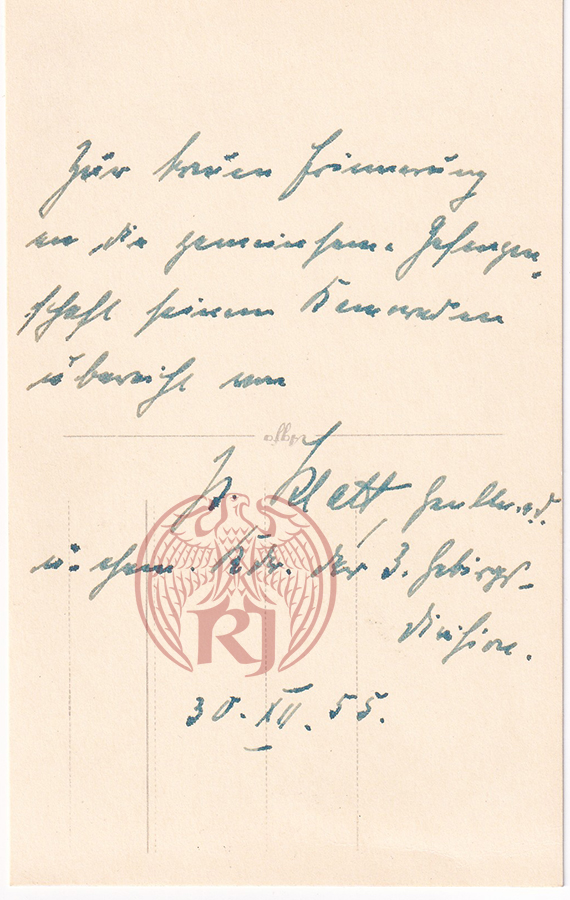 Zur treuen Erinnerung
an die gemeinsame Gefangen-
schaft seinem Kameraden
überreicht von
Agfa
P. Klatt, Genlt. a.d.
u. ehem. Kdr. der 3. Gebirgs-
division.
RJ
30. XII. 55.